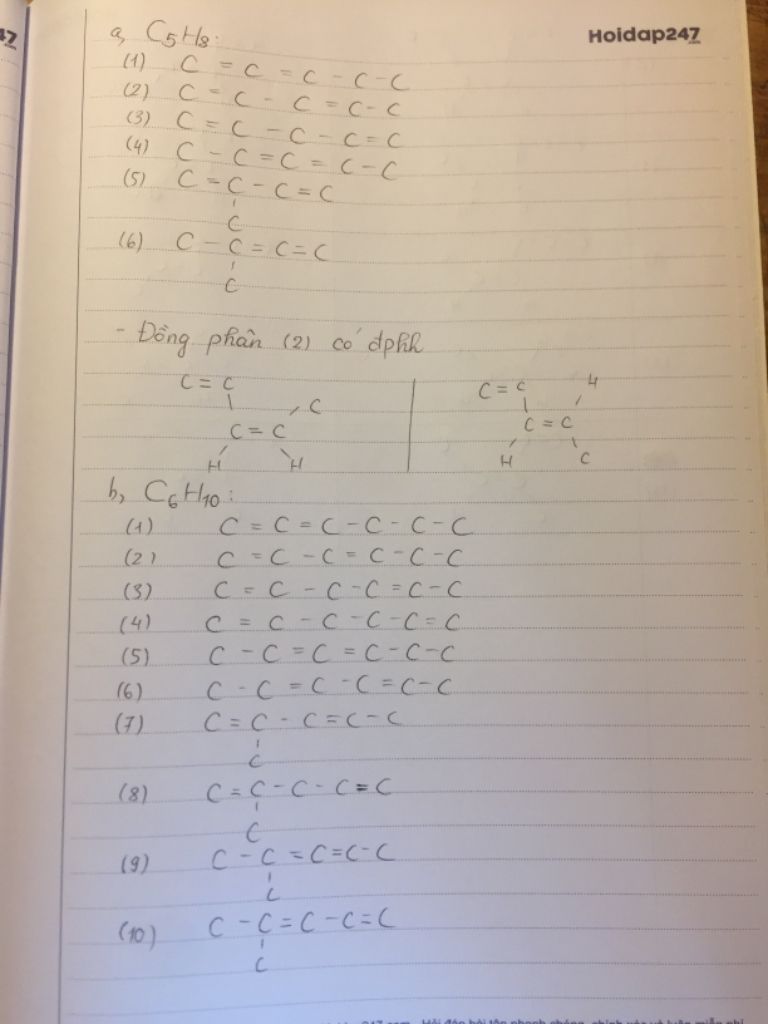 47
Hoidap247
a, C5H8:
(1) C = C = C - C - C
(2) C = C - C = C - C
(3) C = C - C - C = C
(4) C - C = C = C - C
(5) C = C - C = C
C
(6) C - C = C = C
C
- Đồng phân (2) có đphh
C = C
C
C = C
H H
C = C H
C = C
H C
b, C6H10:
(1) C = C = C - C - C - C
(2) C = C - C = C - C - C
(3) C = C - C - C = C - C
(4) C = C - C - C - C = C
(5) C - C = C = C - C - C
(6) C - C = C - C = C - C
(7) C = C - C = C - C
C
(8) C = C - C - C = C
C
(9) C - C = C = C - C
C
(10) C - C = C - C = C
C